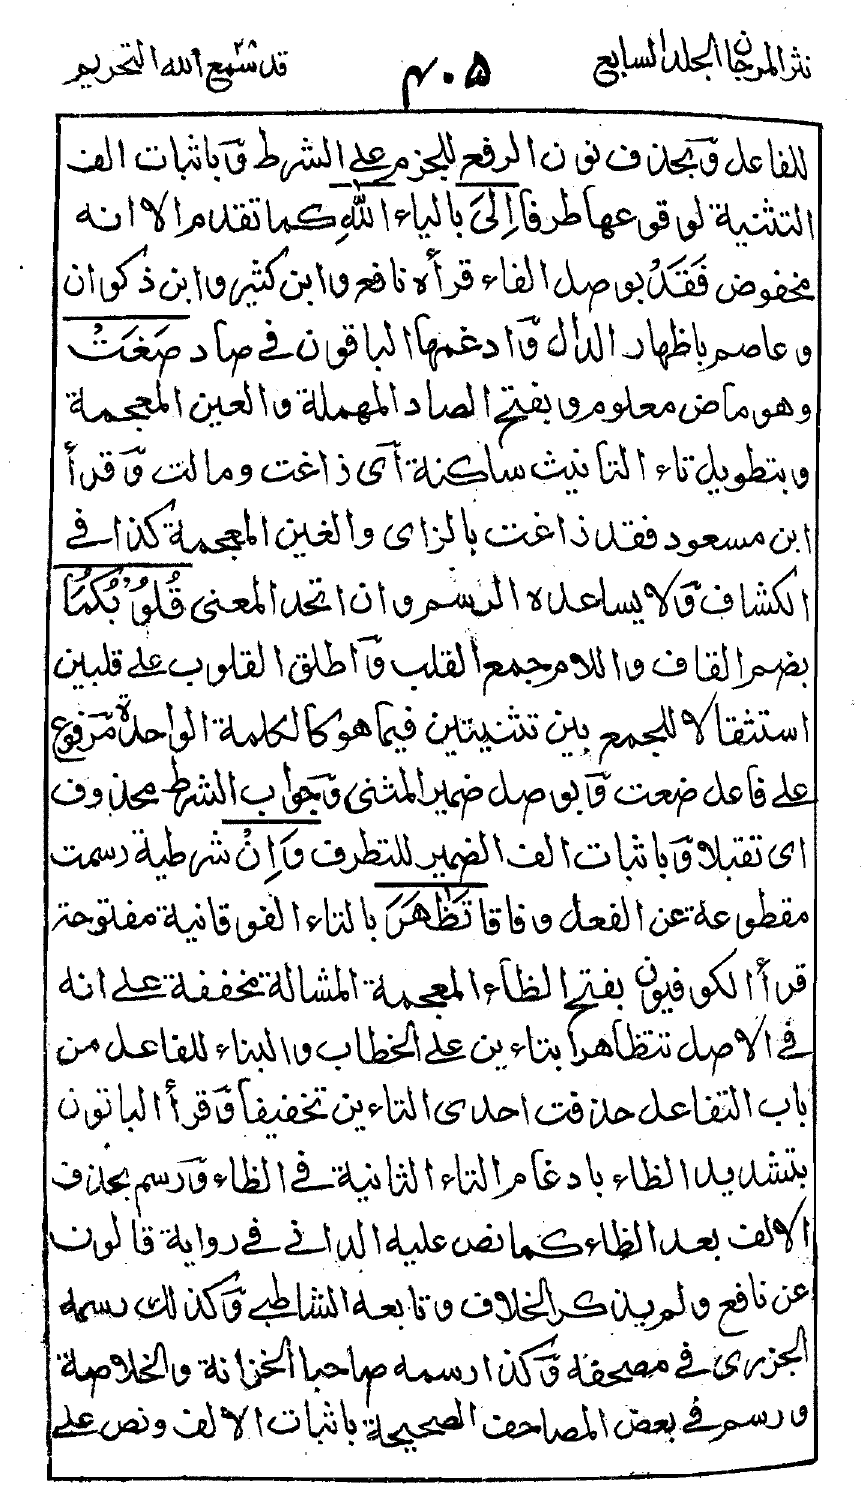 نثر المرجان الجلد السابع ٤٠٥ قد سمع الله ٢٨ التحريم
للفاعل وَبحذف نون الرفع للجزم على الشرط وَباثبات الف
التثنية لوقوعها طرفا اِلَى بالياء اللهِ كما تقدم الا انه
مخفوض فَقَدْ بوصل الفاء قرأه نافع وابن كثير وابن ذكوان
وعاصم باظهار الدال وَادغمها الباقون في صاد صَغَتْ
وهو ماض معلوم وبفتح الصاد المهملة والعين المعجمة
وبتطويل تاء التانيث ساكنة أى زاغت ومالت وَقرأ
ابن مسعود فقد زاغت بالزاى والغين المعجمة كذا في
الكشاف وَلا يساعده الرسم وان اتحد المعنى قُلُوْبُكُمَا
بضم القاف واللام جمع القلب وَاطلق القلوب على قلبين
استثقالا للجمع بين تثنيتين فيما هو كالكلمة الواحدة مَرفوع
على فاعل ضعت وَبوصل ضمير المثنى وَجواب الشرط محذوف
اى تقبلا وَباثبات الف الضمير للتطرف وَاِنْ شرطية رسمت
مقطوعة عن الفعل وفاقا تَظَّهَرَا بالتاء الفوقانية مفتوحة
قرأ الكوفيون بفتح الظاء المعجمة المشالة مخففة على انه
في الاصل تتظاهرا بتاءين على الخطاب والبناء للفاعل من
باب التفاعل حذفت احدى التاءين تخفيفا وَقرأ الباقون
بتشديد الظاء بادغام التاء الثانية في الظاء وَرسم بحذف
الالف بعد الظاء كما نص عليه الدانى في رواية قالون
عن نافع ولم يذكر الخلاف وتابعه الشاطبي وَكذلك رسمه
الجزرى في مصحفه وَكذا رسمه صاحبا الخزانة والخلاصة
ورسم في بعض المصاحف الصحيحة باثبات الالف ونص على